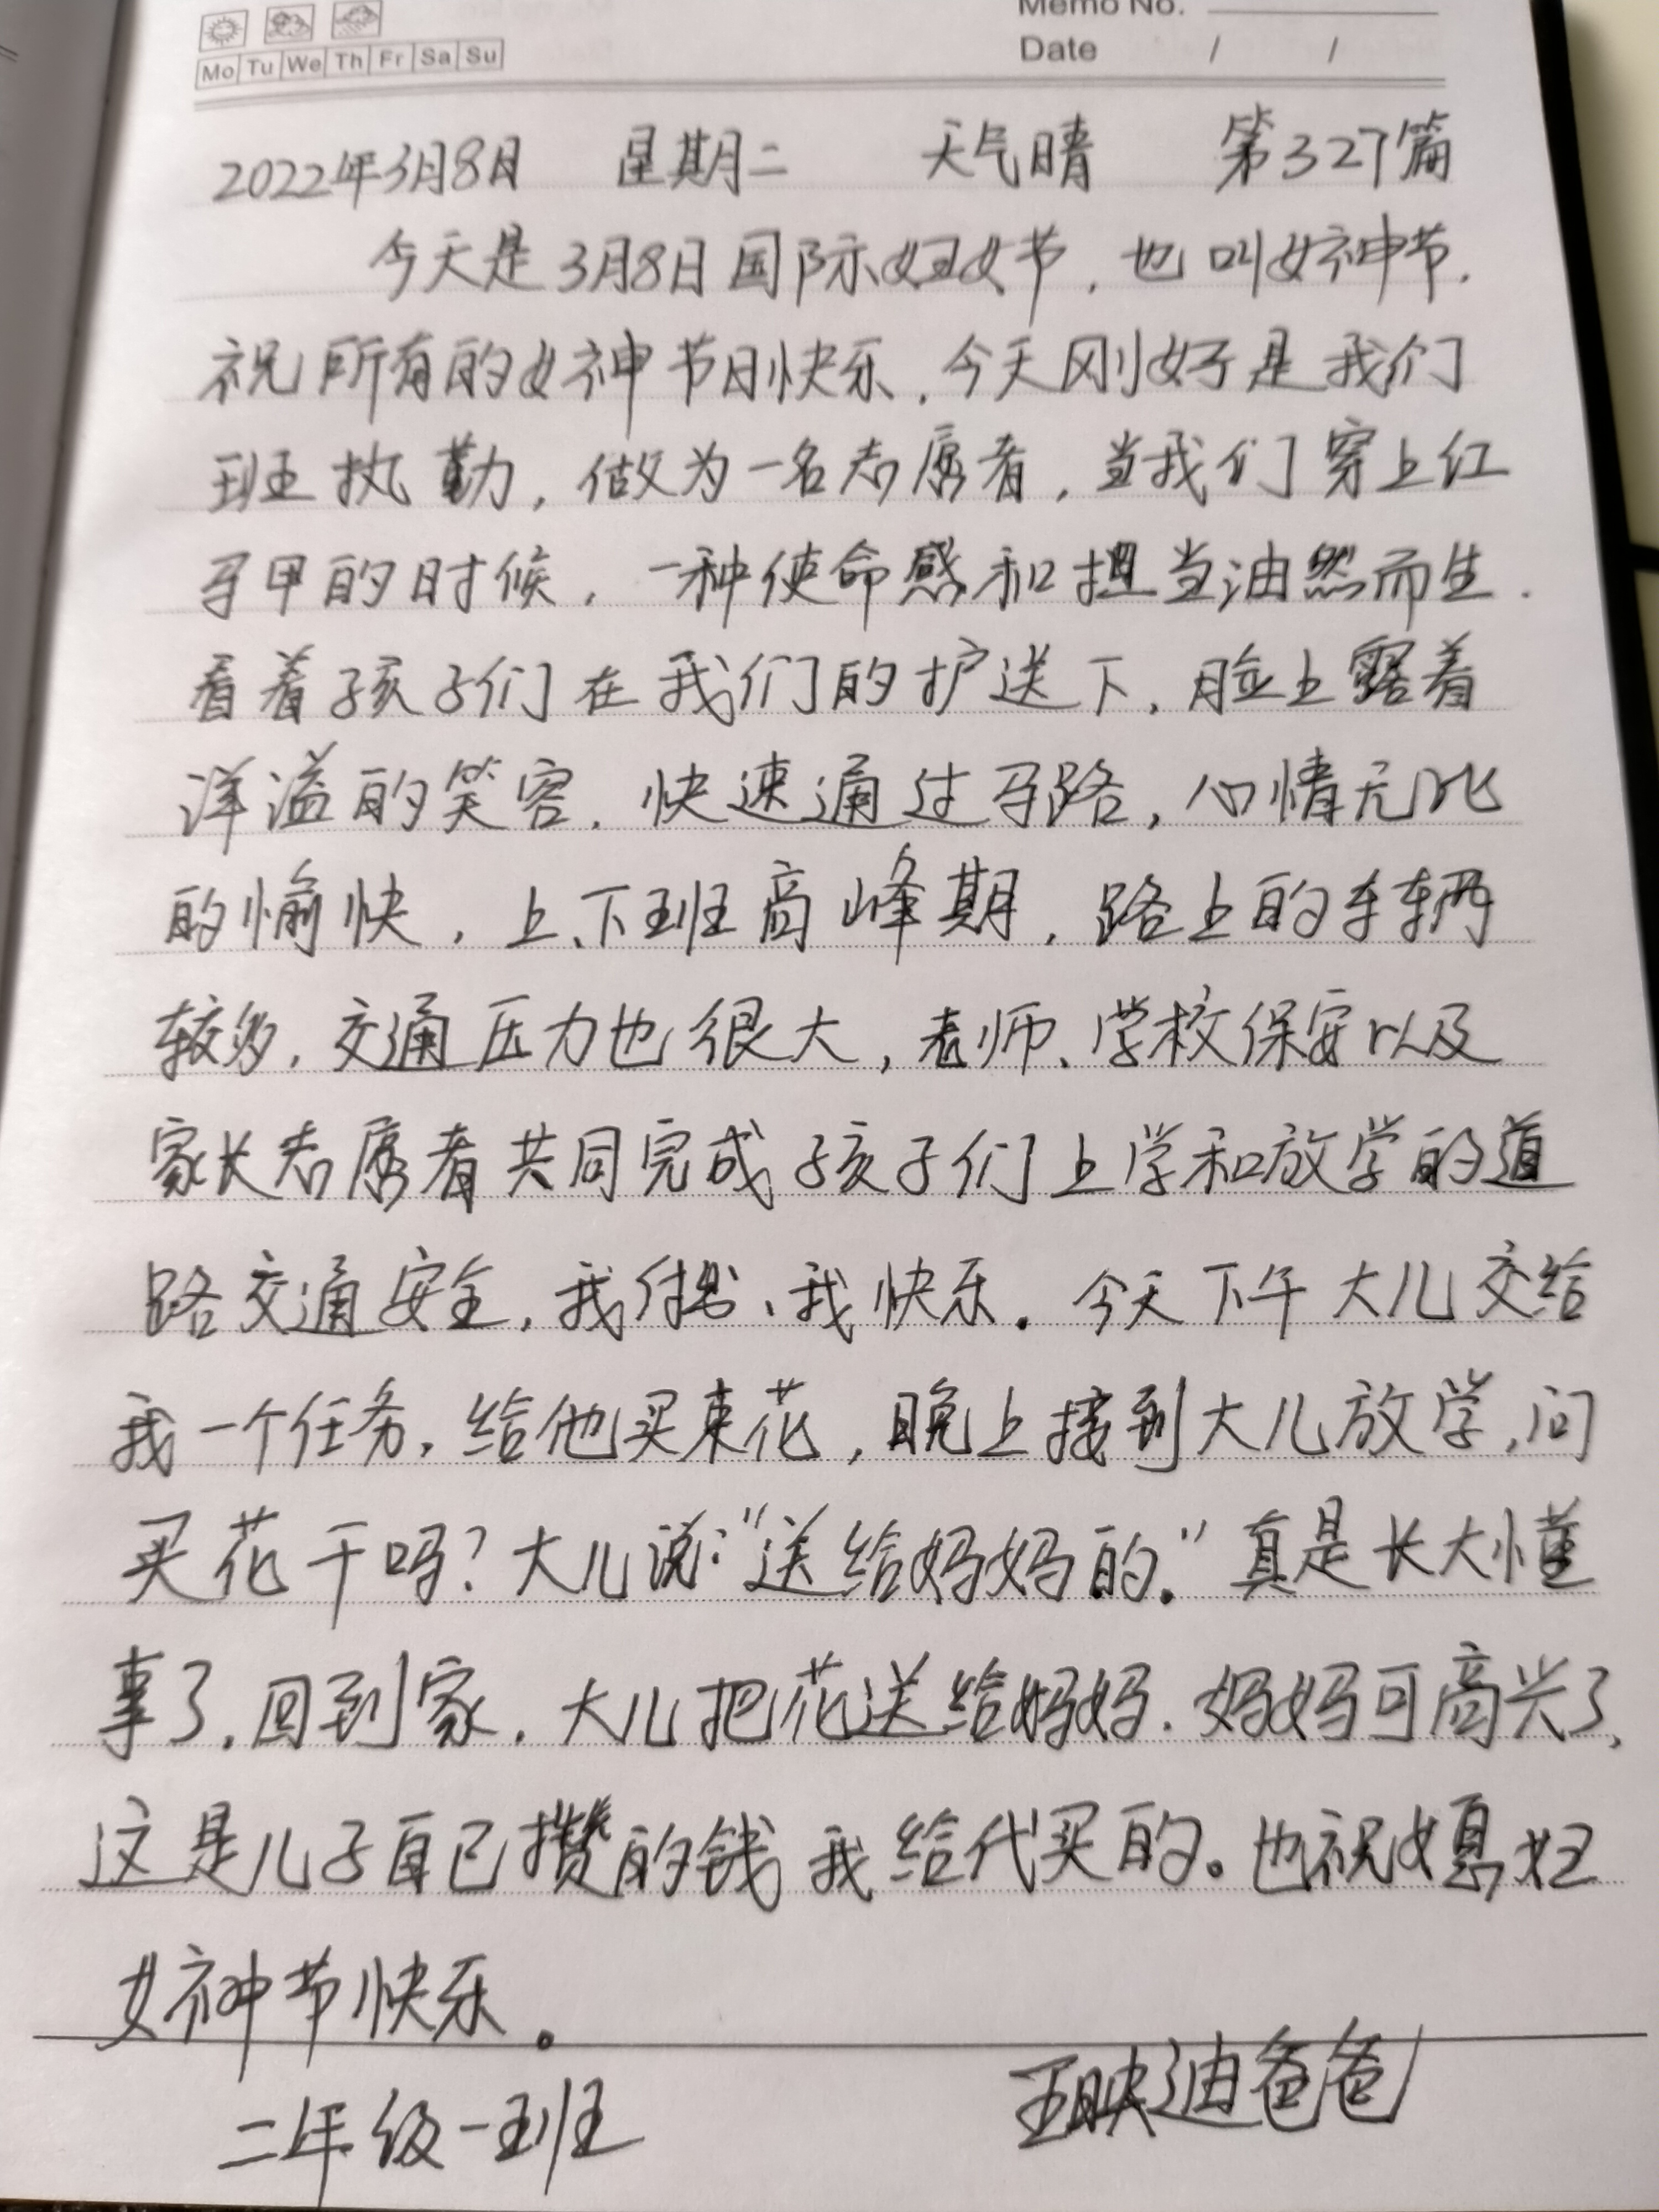 Memo No.
Mo Tu We Th Fr Sa Su
Date / /
2022年3月8日 星期二 天气晴 第327篇
今天是3月8日国际妇女节，也叫女神节.
祝所有的女神节日快乐，今天刚好是我们
班执勤，做为一名志愿者，当我们穿上红
马甲的时候，一种使命感和担当油然而生.
看着孩子们在我们的护送下，脸上露着
洋溢的笑容，快速通过马路，心情无比
的愉快，上、下班高峰期，路上的车辆
较多，交通压力也很大，老师、学校保安以及
家长志愿者共同完成孩子们上学和放学的道
路交通安全，我付出、我快乐。今天下午大儿交给
我一个任务，给他买束花，晚上接到大儿放学，问
买花干吗？大儿说："送给妈妈的。"真是长大懂
事了，回到家，大儿把花送给妈妈，妈妈可高兴了，
这是儿子自己攒的钱我给代买的。也祝媳妇
女神节快乐。
二年级一班 王映迪爸爸